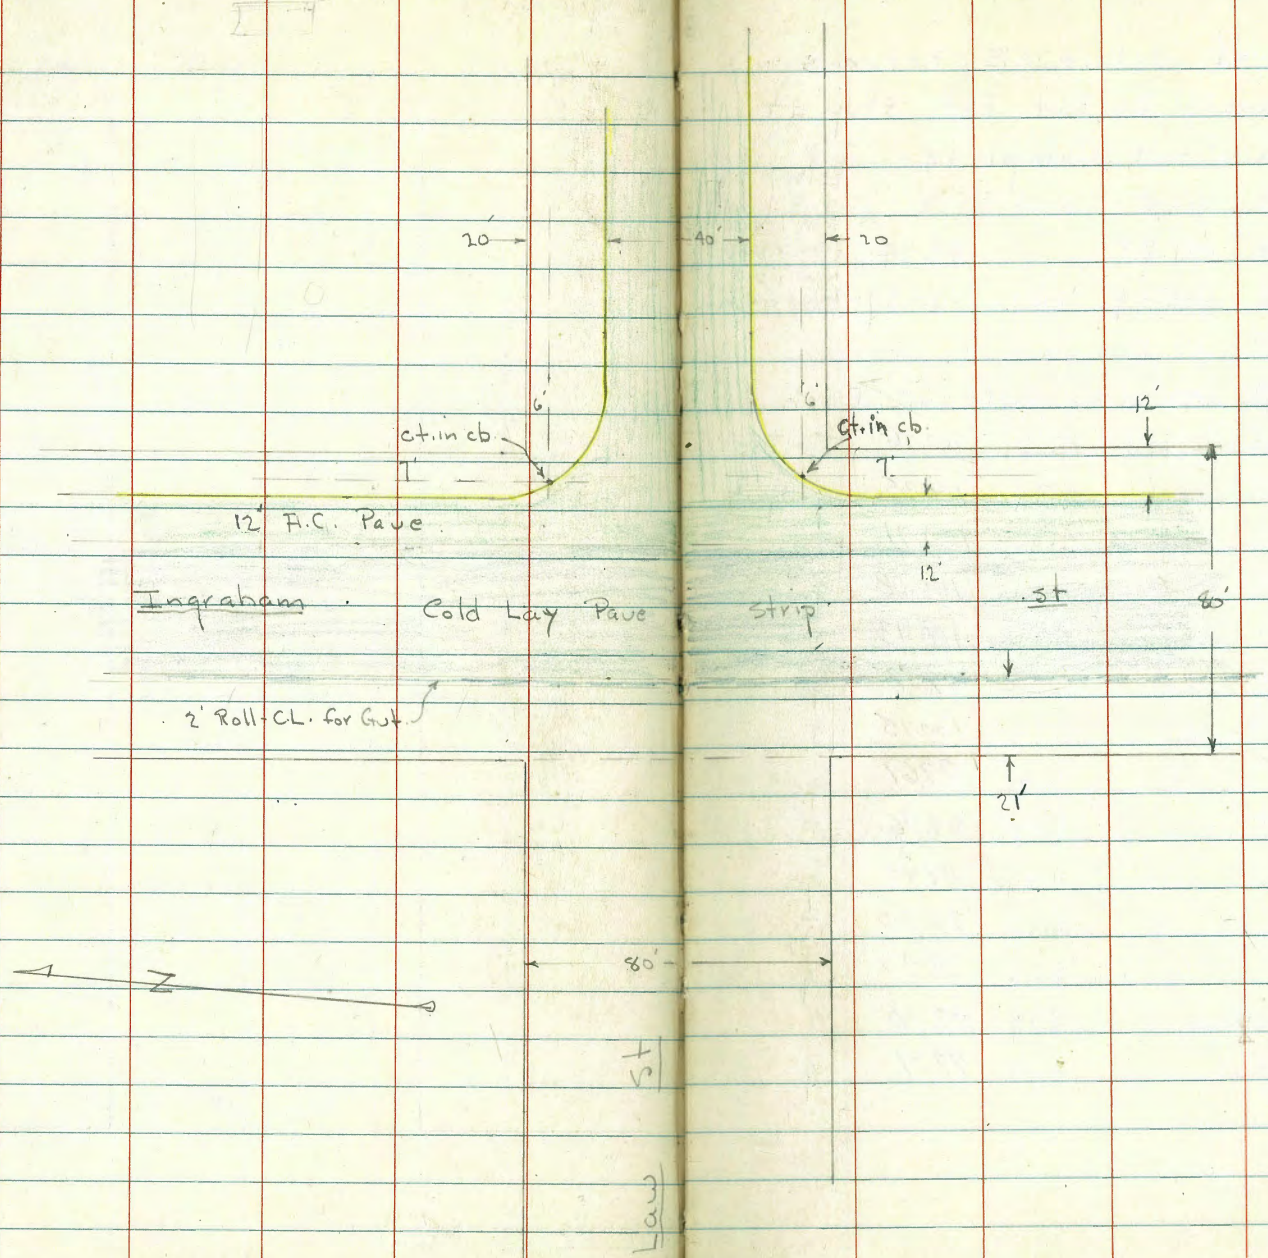 20' 40' 20
6' 6'
12'
ct. in cb. ct. in cb.
7' 7'
12' A.C. Pave
12'
Ingraham St
Cold Lay Pave Strip
80'
2' Roll-CL. for Gut.
21'
80'
N
Law St